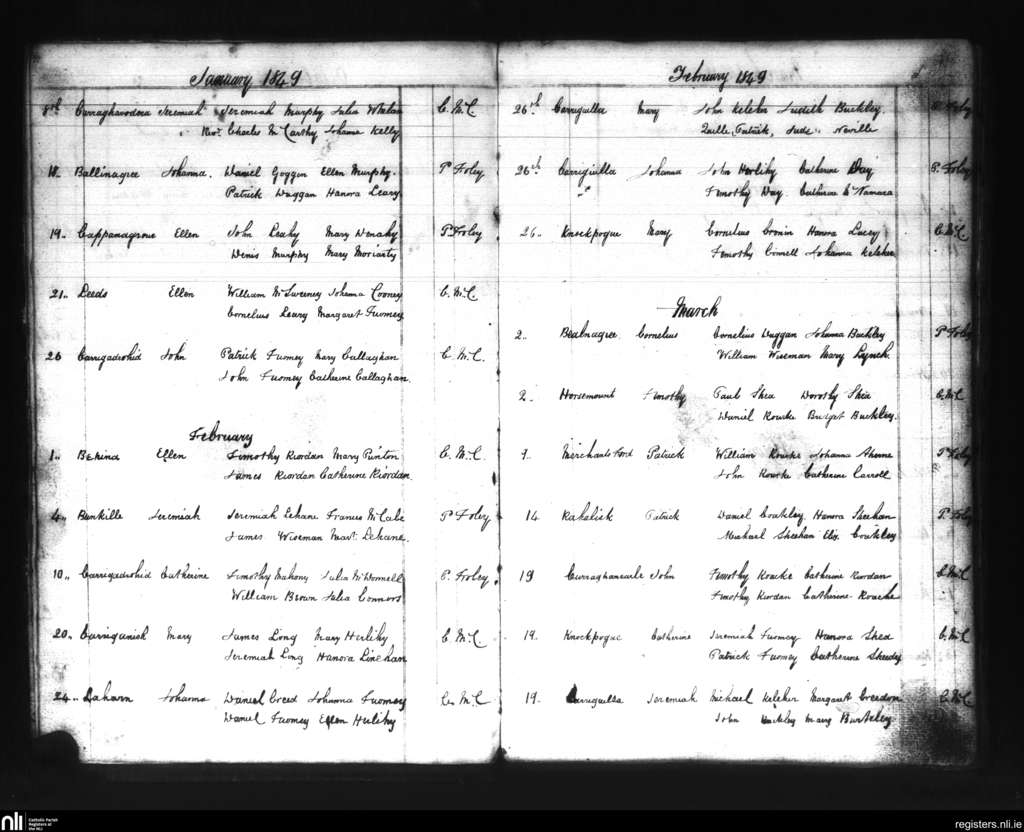 January 1849
8th Carraghawodera Jeremiah Jeremiah Murphy Julia Whelan C. McC.
Revd. Charles McCarthy Johanna Kelly
18 Ballinagree Johanna. Daniel Goggin Ellen Murphy. P Foley
Patrick Duggan Hanora Leary
19 Cappanagrone Ellen John Leahy Mary Denahy P Foley
Denis Murphy Mary Moriarty
21 Leeds Ellen William McSweeney Johanna Cooney C. McC.
Cornelius Leary Margaret Twomey
26 Carrigadrohid John Patrick Twomey Mary Callaghan C. McC.
John Twomey Catherine Callaghan.
February
1 Ellen Timothy Riordan Mary C. McC.
James Riordan Catherine Riordan
4 Bunkille Jeremiah Jeremiah Lehane Frances McCabe P Foley
James Wiseman Mart. Lehane.
10 Carrigadrohid Catherine Timothy Mahony Julia McDonnell P. Foley
William Brown Julia Connors
20 Carriganish Mary James Long Mary Herlihy C. McC.
Jeremiah Long Hanora Linehan
24 Laharn Johanna Daniel Creed Johanna Twomey C. McC.
Daniel Twomey Ellen Herlihy
February 1849
26th Carriguilla Mary John Keleher Judith Buckley P. Foley
Patrick, Neville
26th Carriguilla Johanna John Herlihy Catherine Day P. Foley
Timothy Day Catherine McNamara
26 Knockpogue Mary Cornelius Cronin Hanora Lucey C. McC
Timothy Johanna Keleher
March
2 Bealnagree Cornelius Cornelius Duggan Johanna Buckley P Foley
William Wiseman Mary Lynch.
2 Horsemount Timothy Paul Shea Dorothy Shea C. McC
Daniel Rourke Bridget Buckley.
9 Merchants Ford Patrick William Rourke Johanna Aherne P Foley
John Rourke Catherine Carroll
14 Rahalisk Patrick Daniel Coakley Hanora Sheehan P Foley
Michael Sheehan Eliz. Coakley
19 Curraghanearle John Timothy Rourke Catherine Riordan C. McC
Timothy Riordan Catherine Rourke
19. Knockpogue Catherine Jeremiah Twomey Hanora Shea C. McC
Patrick Twomey Catherine Sheedy
19. Carriguilla Jeremiah Michael Keleher Margaret Creedon C. McC
John Buckley Mary Buckley
nli Catholic Parish
Registers at
the NLI
registers.nli.ie